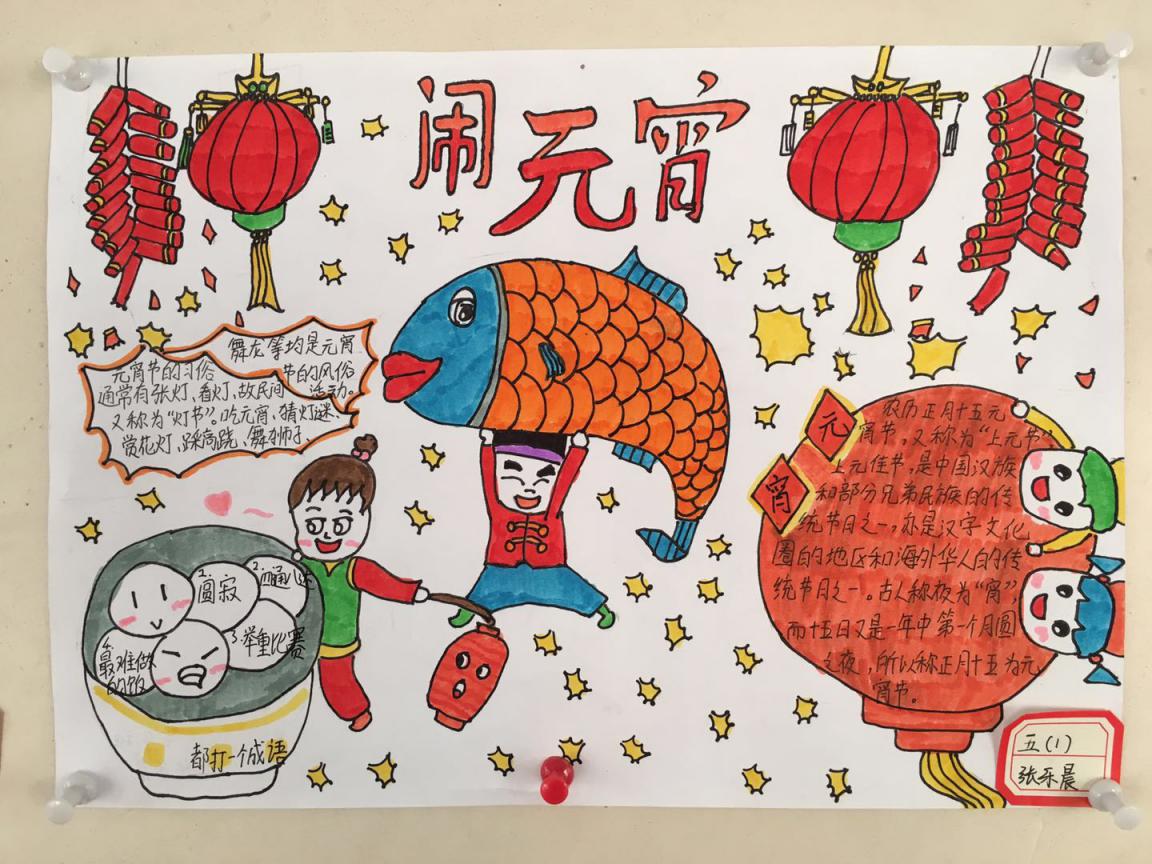 闹元宵
舞龙等均是元宵
节的风俗
活动。
元宵节的习俗
通常有张灯、看灯、故民间
又称为“灯节”。吃元宵、猜灯谜、
赏花灯、踩高跷、舞狮子、
元
宵
农历正月十五元
宵节，又称为“上元节”
上元佳节，是中国汉族
和部分兄弟民族的传
统节日之一，亦是汉字文化
圈的地区和海外华人的传
统节日之一。古人称夜为“宵”，
而十五日又是一年中第一个月圆
之夜，所以称正月十五为元
宵节。
2.
圆寂
3.举重比赛
最难做
的饭
都打一个成语
五(1)
张乐晨